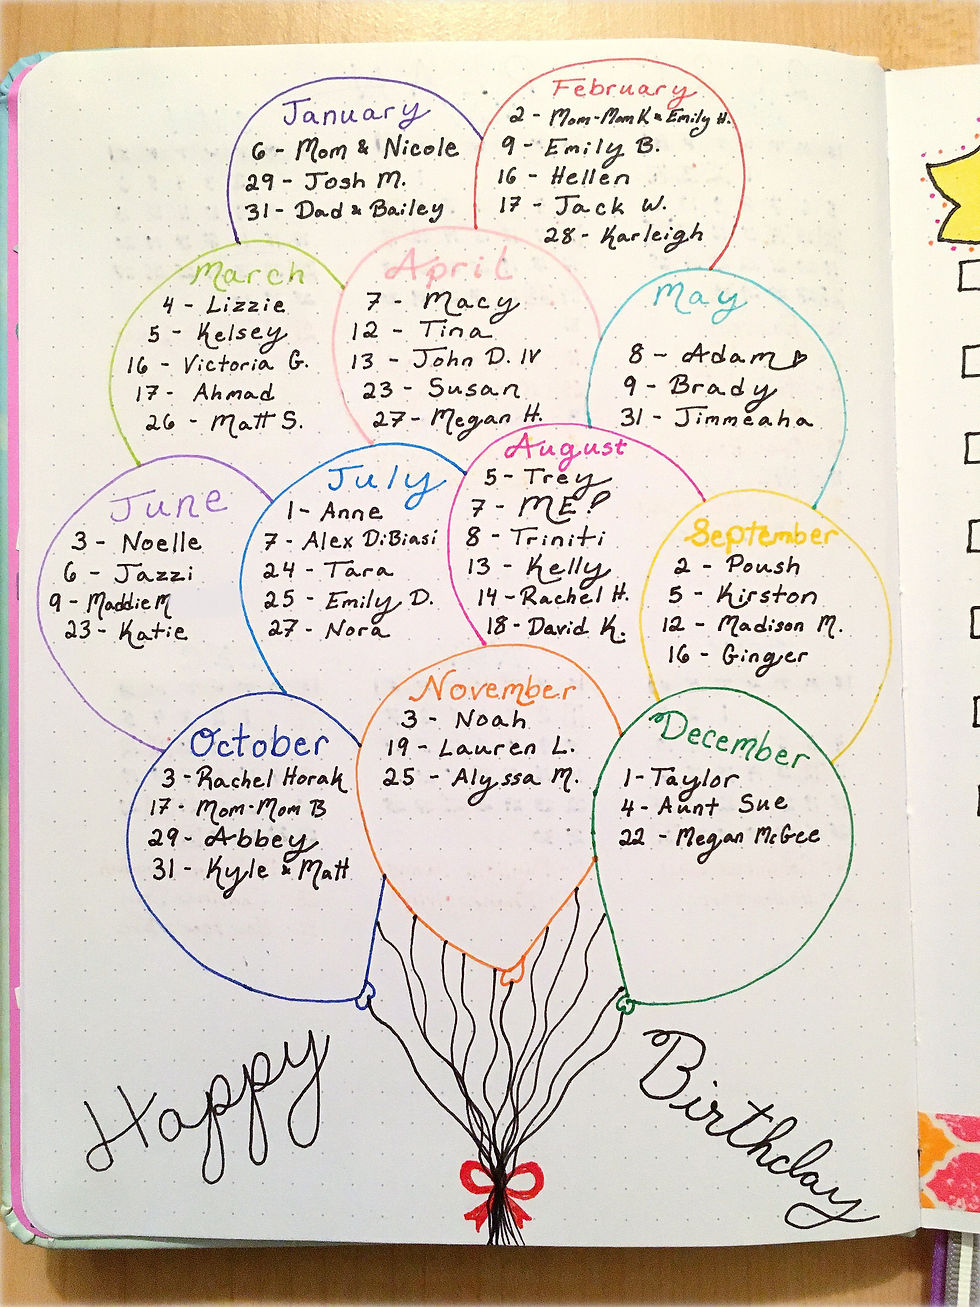 January
6 - Mom & Nicole
29 - Josh M.
31 - Dad & Bailey
February
2 - Mom-Mom K & Emily H.
9 - Emily B.
16 - Hellen
17 - Jack W.
28 - Karleigh
March
4 - Lizzie
5 - Kelsey
16 - Victoria G.
17 - Ahmad
26 - Matt S.
April
7 - Macy
12 - Tina
13 - John D. IV
23 - Susan
27 - Megan H.
May
8 - Adam
9 - Brady
31 - Jimmeaha
June
3 - Noelle
6 - Jazzi
9 - Maddie M
23 - Katie
July
1 - Anne
7 - Alex DiBiasi
24 - Tara
25 - Emily D.
27 - Nora
August
5 - Trey
7 - ME!
8 - Triniti
13 - Kelly
14 - Rachel H.
18 - David K.
September
2 - Poush
5 - Kirston
12 - Madison M.
16 - Ginger
October
3 - Rachel Horak
17 - Mom-Mom B
29 - Abbey
31 - Kyle & Matt
November
3 - Noah
19 - Lauren L.
25 - Alyssa M.
December
1 - Taylor
4 - Aunt Sue
22 - Megan McGee
Happy
Birthday